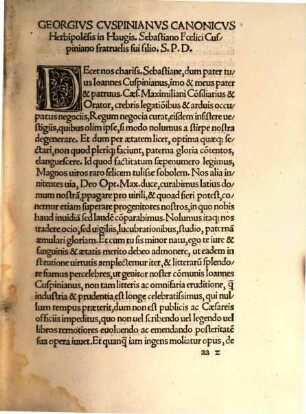 GEORGIVS CVSPINIANVS CANONICVS
Herbipolēsis in Haugis. Sebastiano Fœlici Cus
piniano fratruelis sui filio. S. P. D.
DEcet nos chariss. Sebastiane, dum pater tu
us Ioannes Cuspinianus, imo & meus pater
& patruus. Cæs. Maximiliani Cōsiliarius &
Orator, crebris legatiōibus & arduis occu
patus negociis, Regum negocia curat, eisdem insistere ue
stigiis, quibus olim ipse, si modo nolumus a stirpe nostra
degenerare. Et dum per ætatem licet, optima quæq; se
ctari, non quod plerīq; faciunt, paterna gloria cōtentos,
elanguescere. Id quod factitatum sæpenumero legimus,
Magnos uiros raro felicem tulisse sobolem. Nos alia in
nitentes uia, Deo Opt. Max. duce, curabimus latius do
mum nostrā ꝓpagare pro uirili, & quoad fieri potest, co
nemur etiam superare progenitores nostros, in quo nobis
haud inuidiā sed laudē cōparabimus. Nolumus itaq; nos
tradere ocio, sed uigiliis, lucubrationibus, studio, pater nā
æmulari gloriam. Et cum tu sis minor natu, ego te iure &
sanguinis & ætatis merito debeo admonere, ut eadem in
stitutione uirtutis amplectemur iter, & litterarū splendo
re fiamus percelebres, ut genitor noster cōmunis Ioannes
Cuspinianus, non tam litteris ac omnifaria eruditione, q̄
industria & prudentia est longe celebratissimus, qui nul
lum tempus præterit, dum non est publicis ac Cæsareis
officiis impeditus, quo non uel scribendo uel legendo uel
libros remotiores euoluendo ac emendando posteritatē
sua opera iuuet. Et quanq̄ iam ingens moliatur opus, de
aa 2